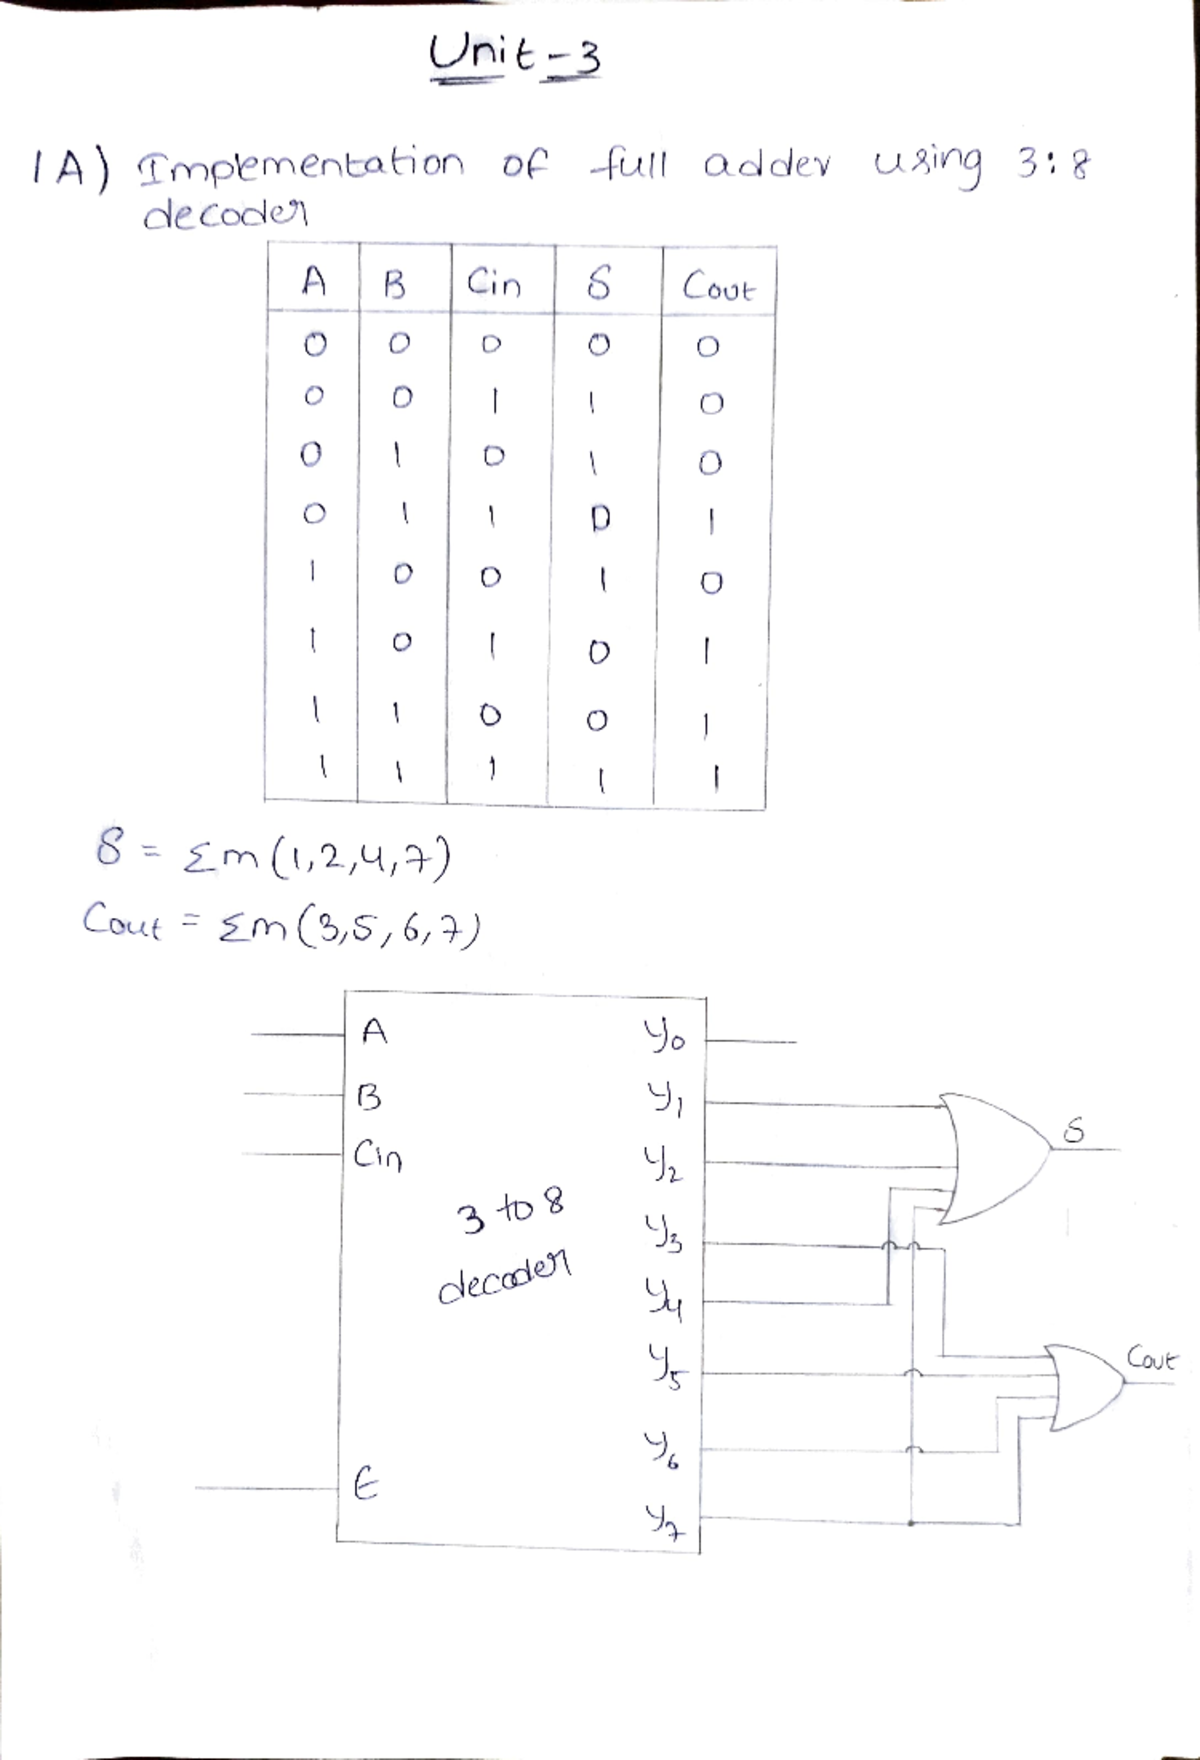 Unit-3
1A) Implementation of full adder using 3:8
decoder
A B Cin S Cout
0 0 0 0 0
0 0 1 1 0
0 1 0 1 0
0 1 1 0 1
1 0 0 1 0
1 0 1 0 1
1 1 0 0 1
1 1 1 1 1
S = Σm(1,2,4,7)
Cout = Σm(3,5,6,7)
A
B
Cin
3 to 8
decoder
E
y0
y1
y2
y3
y4
y5
y6
y7
S
Cout